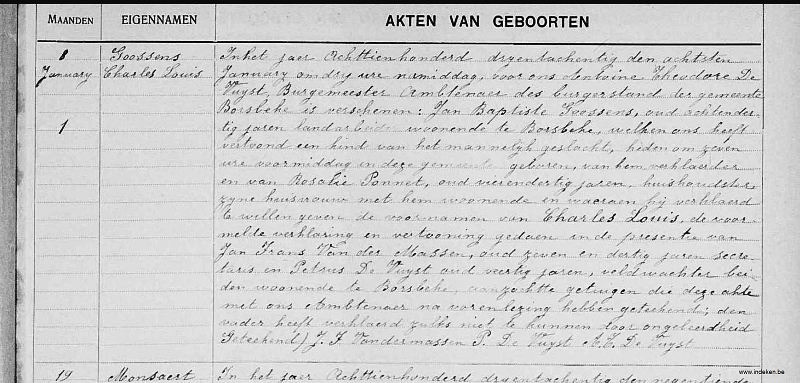 MAANDEN EIGENNAMEN AKTEN VAN GEBOORTEN
8 Goossens In het jaer Achttienhonderd dryentachentig den achtsten
January Charles Louis January om dry ure namiddag, voor ons Antoine Theodore De
Vuyst, Burgemeester Ambtenaer des burgerstand der gemeente
Borsbeke is verschenen: Jan Baptiste Goossens, oud achtender-
1 tig jaren landarbeider woonende te Borsbeke, welken ons heeft
vertoond een kind van het mannelyk geslacht, heden om zeven
ure voormiddag in deze gemeente geboren, van hem verklaerder
en van Rosalie Ponnet, oud vierendertig jaren, huishoudster
zyne huisvrouw met hem woonende en waeraen hy verklaerd
te willen geven de voornamen van Charles Louis, de voor-
melde verklaring en vertooning gedaen in de presentie van
Jan Frans Van der Massen, oud zeven en dertig jaren secre-
taris en Petrus De Vuyst oud veertig jaren, veldwachter bei-
den woonende te Borsbeke, aanzochte getuigen die deze akte
met ons Ambtenaer na voorenlezing hebben geteekend; den
vader heeft verklaerd zulks niet te kunnen door ongeleerdheid
Geteekend) J. F. Vandermassen P. De Vuyst A. T. De Vuyst
19 Monsaert In het jaer Achttienhonderd dryentachentig den negentiende
www.indeken.be